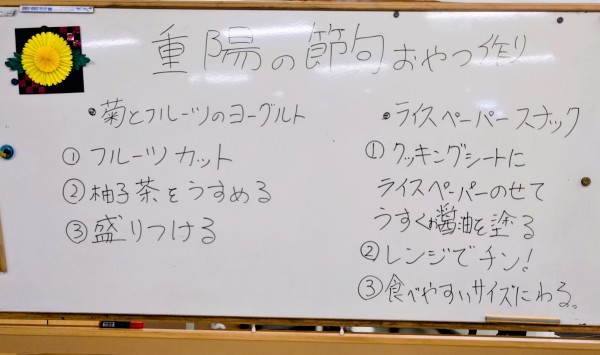 重陽の節句おやつ作り
•菊とフルーツのヨーグルト
①フルーツカット
②柚子茶をうすめる
③盛りつける
•ライスペーパースナック
①クッキングシートに
ライスペーパーのせて
うすくお醤油を塗る
②レンジでチン!
③食べやすいサイズにわる。